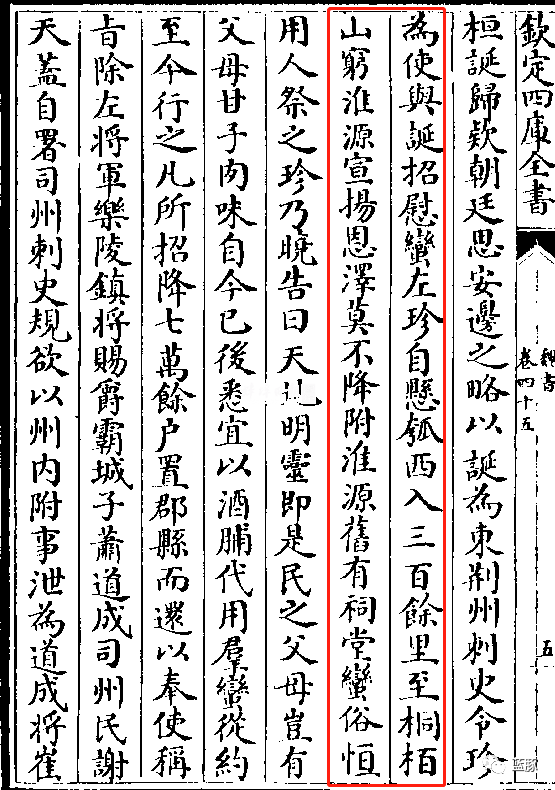 欽定四庫全書
魏書
卷四十五
五
桓誕歸欵朝廷思安邊之略以誕為東荆州刺史令珍
為使與誕招慰蠻左珍自懸瓠西入三百餘里至桐栢
山窮淮源宣揚恩澤莫不降附淮源舊有祠堂蠻俗恒
用人祭之珍乃曉告曰天地明靈即是民之父母豈有
父母甘子肉味自今已後悉宜以酒脯代用羣蠻從約
至今行之凡所招降七萬餘户置郡縣而還以奉使稱
㫖除左將軍樂陵鎮將賜爵霸城子蕭道成司州民謝
天蓋自署司州刺史規欲以州内附事泄為道成將崔
蓝豚